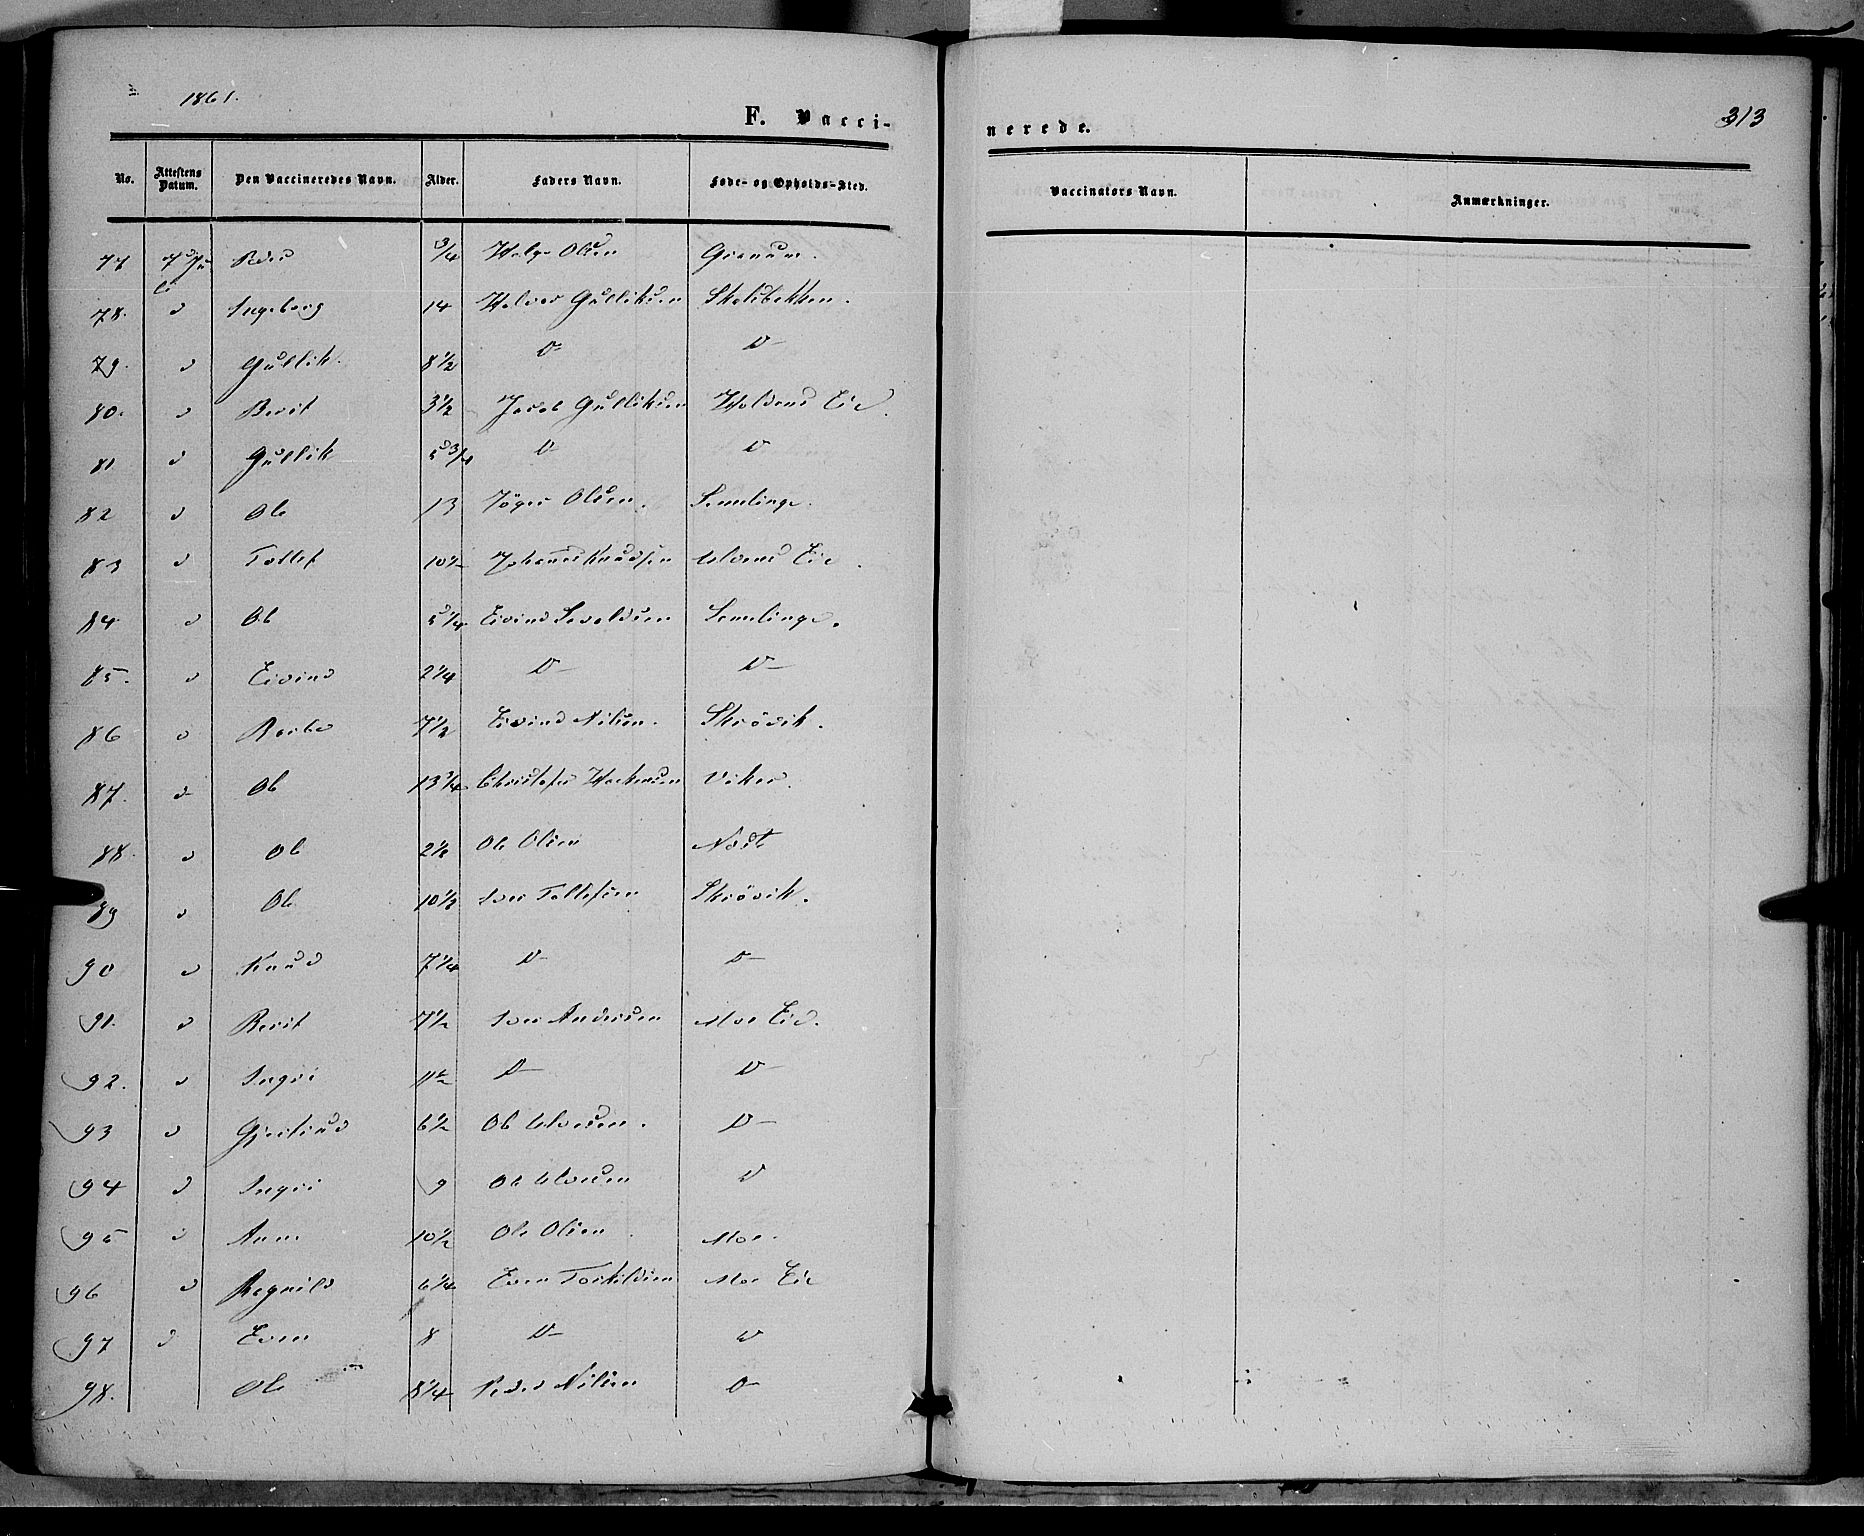 1861.
F. Vacci-
nerede.
313
No. Attestens Datum. Den Vaccineredes Navn. Alder. Faders Navn. Føde- og Opholds-Sted. Vaccinators Navn. Anmærkninger.
77 Peder 3/4 Helge Olsen
78. d Ingeborg 14 Halvor Gulliksen
79. d Gullik 8 1/2 D- D-
80. d Berit 3 1/2 Jacob Gulliksen Haldens Eie.
81 d Gullik 5 3/4 D- D
82 d Ole 13 Olsen. Semlinge.
83 d Tollef 10 1/2 Johannes Knudsen Eie.
84 d Ole 5 1/4 Eivind Sevaldsen Semlinge.
85. d Eivind 2 1/4 D- D-
86 d Barbo 7 1/2 Eivind Nilsen. Skrövik.
87. d Ole 13 3/4 Christofer Haakensen Viker.
88. d Ole Ole Olsen
89 d Ole 10 1/2 Iver Tollefsen Skrövik.
90 d Knud 7 1/4 D- D-
91. d Berit 7 1/2 Iver Andersen Moe Eie.
92. d Ingri D- D-
93 d Gjertrud 6 1/2 Ole D-
94 d Ingri 9 Ole D
95 d Anne 10 1/2 Ole Olsen. Moe.
96 d Ragnild 6 1/4 Even Torkildsen Moe Eie
97 d Even 8 D- D
98. Ole 8 1/4 Peder Nilsen D-